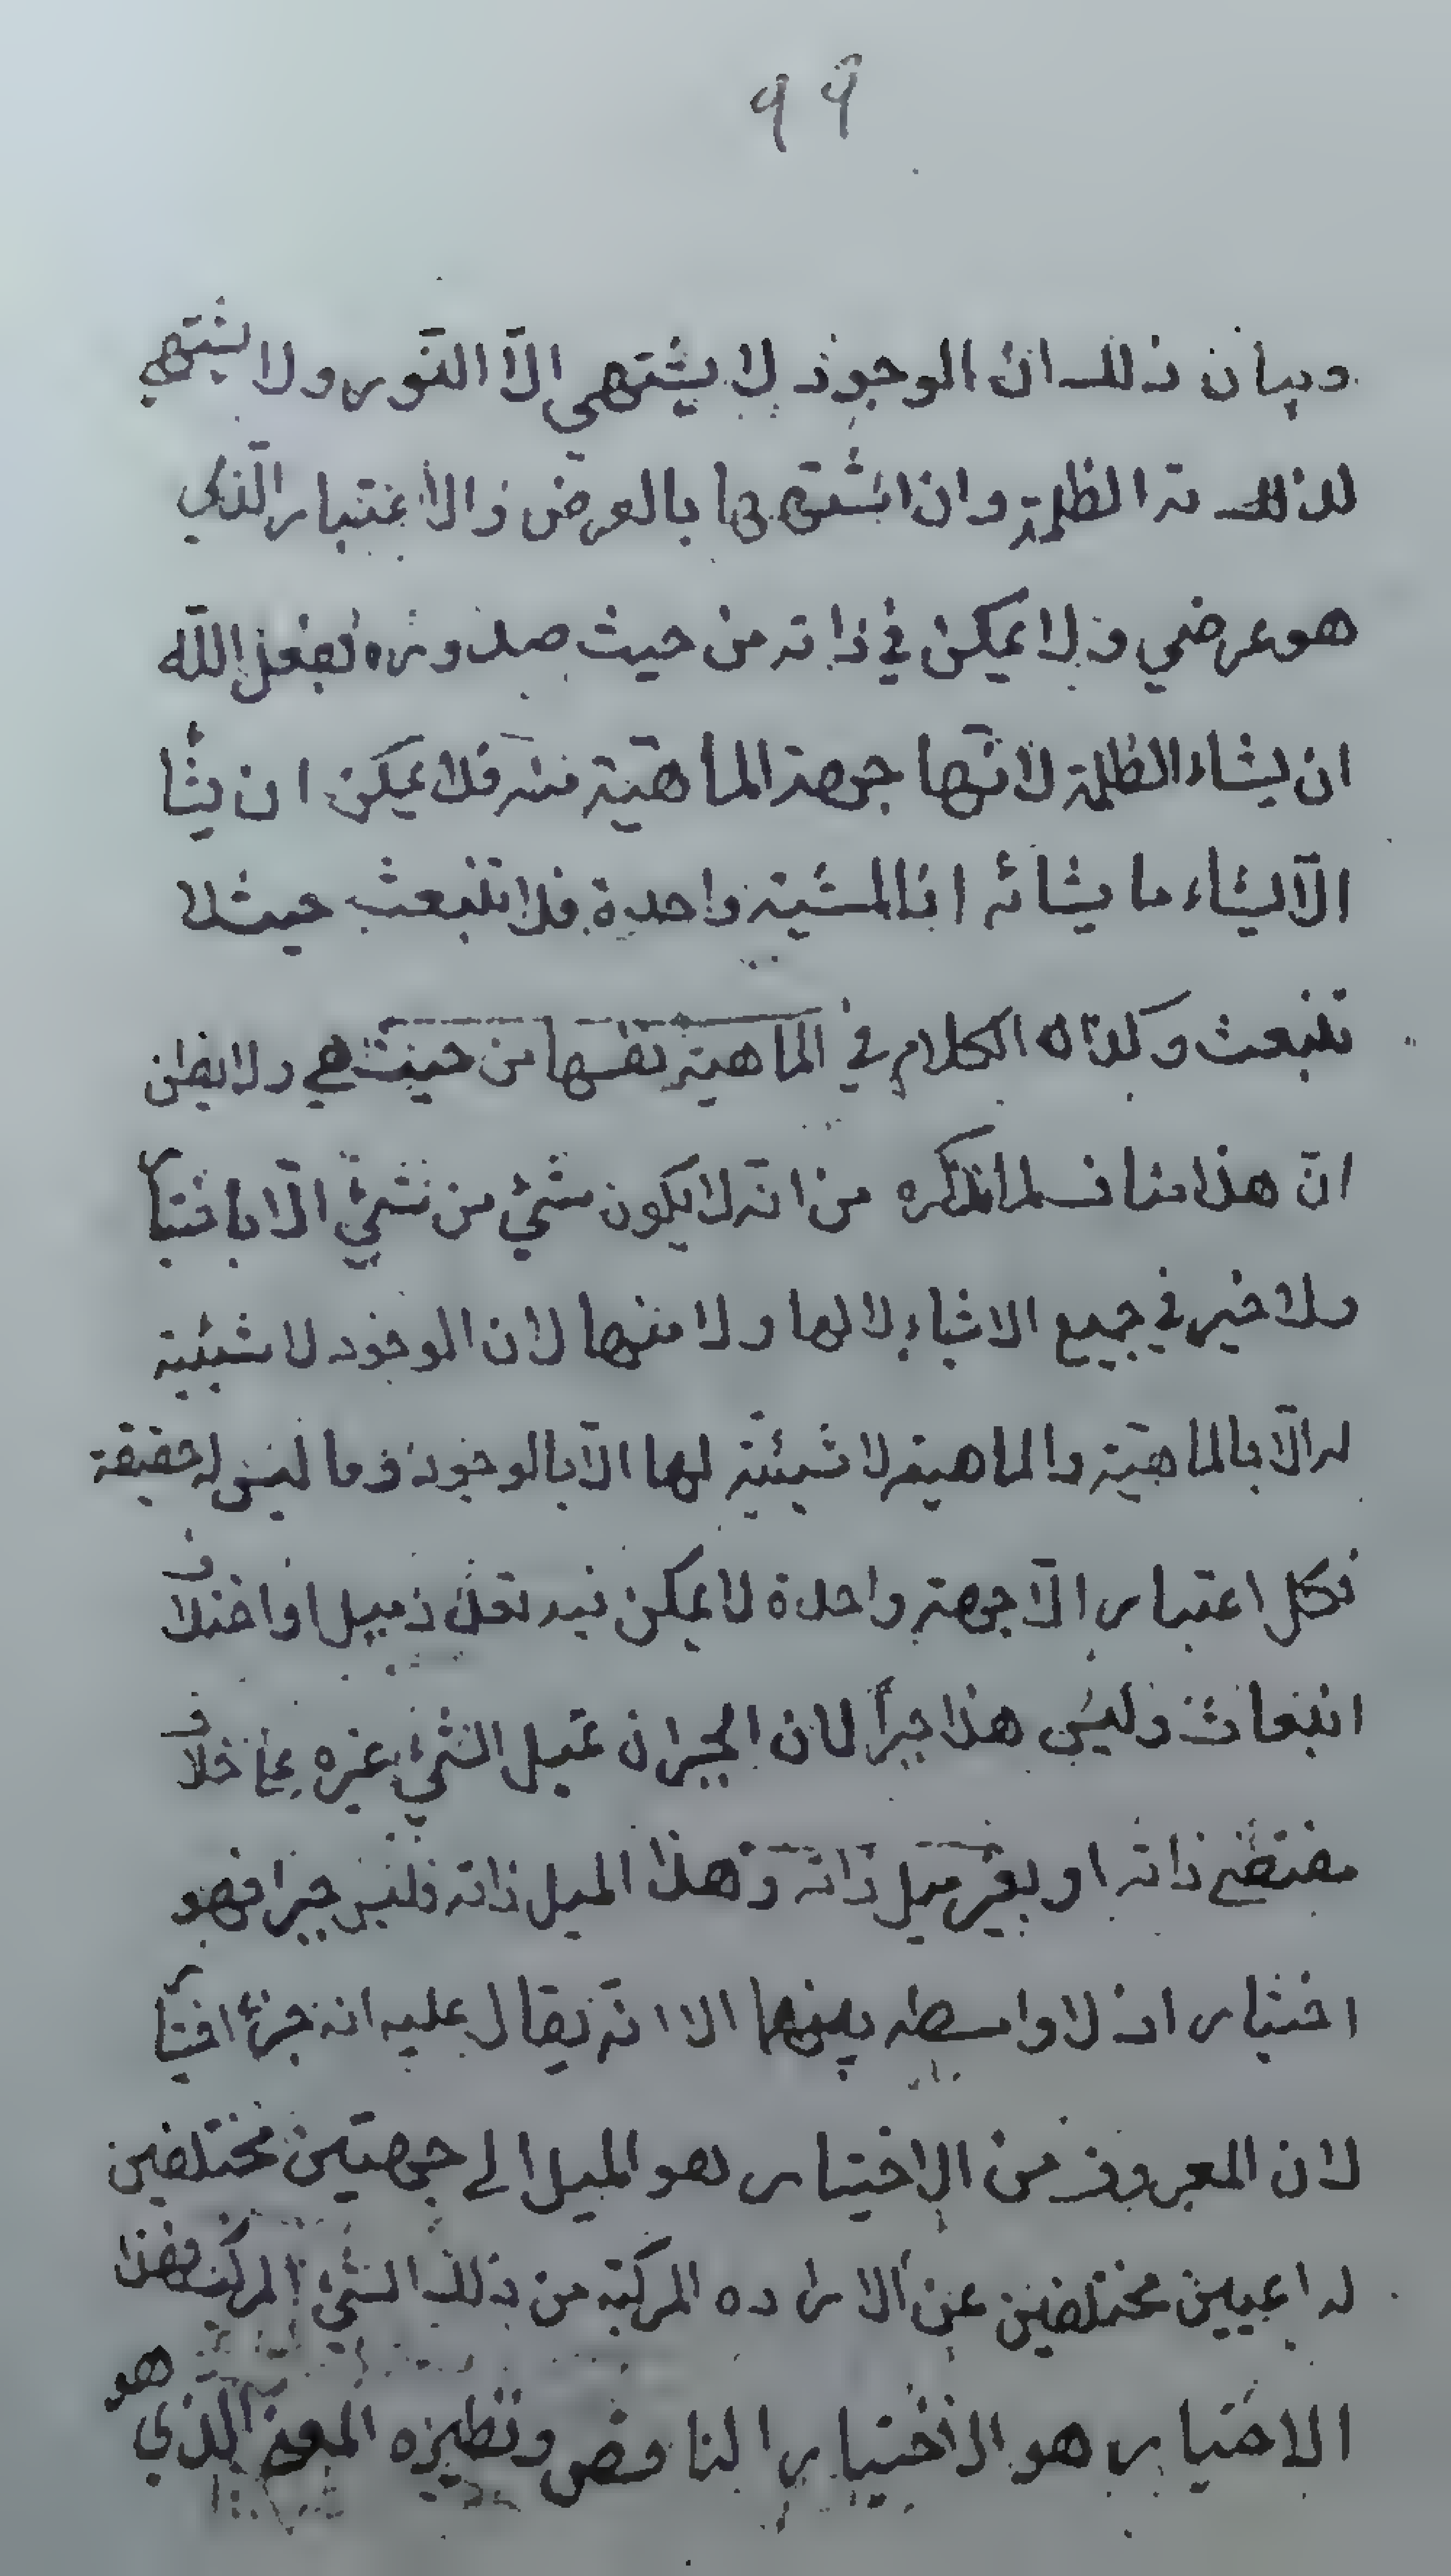 ٩٩
وبيان ذلك ان الوجود لا يشتهي الّا النّور ولا يشتهي
لذلك ته الظلمة وان اشتهى بها بالعرض والاعتبار الّذي
هو عرضي ولا يمكن في ذاته من حيث صدوره بفعل اللّه
ان يشاء الظلمة لانّها جهة الماهيّة منه فلا يمكن ان يشا
الّا يشاء ما يشائه انا المشية واحدة فلا تنبعث حيث لا
تنبعث وكذلك الكلام في الماهية نفسها من حيث هي ولا يظن
انّ هذا مناف لما نذكره من انّه لا يكون شيء من شيء الّا باختيا
ولا خير في جميع الاشياء لا لها ولا منها لان الوجود لا شيئية
له الّا بالماهيّة والماهية لا شيئيّة لها الّا بالوجود وما ليس له حقيقة
فكل اعتبار الّا جهة واحدة لا يمكن فيه تعدّد ميل او اختلا
ف
انبعاث وليس هذا جبراً لان الجبر ان يميل الشيء غيره بما خلا
ف
مقتضي ذاته او بغير ميل ذاته وهذا الميل ذاته فليس جبرا فهو
اختيار اذ لا واسطه بينهما الا انّه يقال عليه انه جزء اختيا
ر
لان المعروف من الاختيار هو الميل الى جهتين مختلفين
لداعيين مختلفين عن الاراده المركبة من ذلك الشيء المركب فهذا
هو
الاختيار هو الاختيار الناقص ونظيره المعنى الّذي